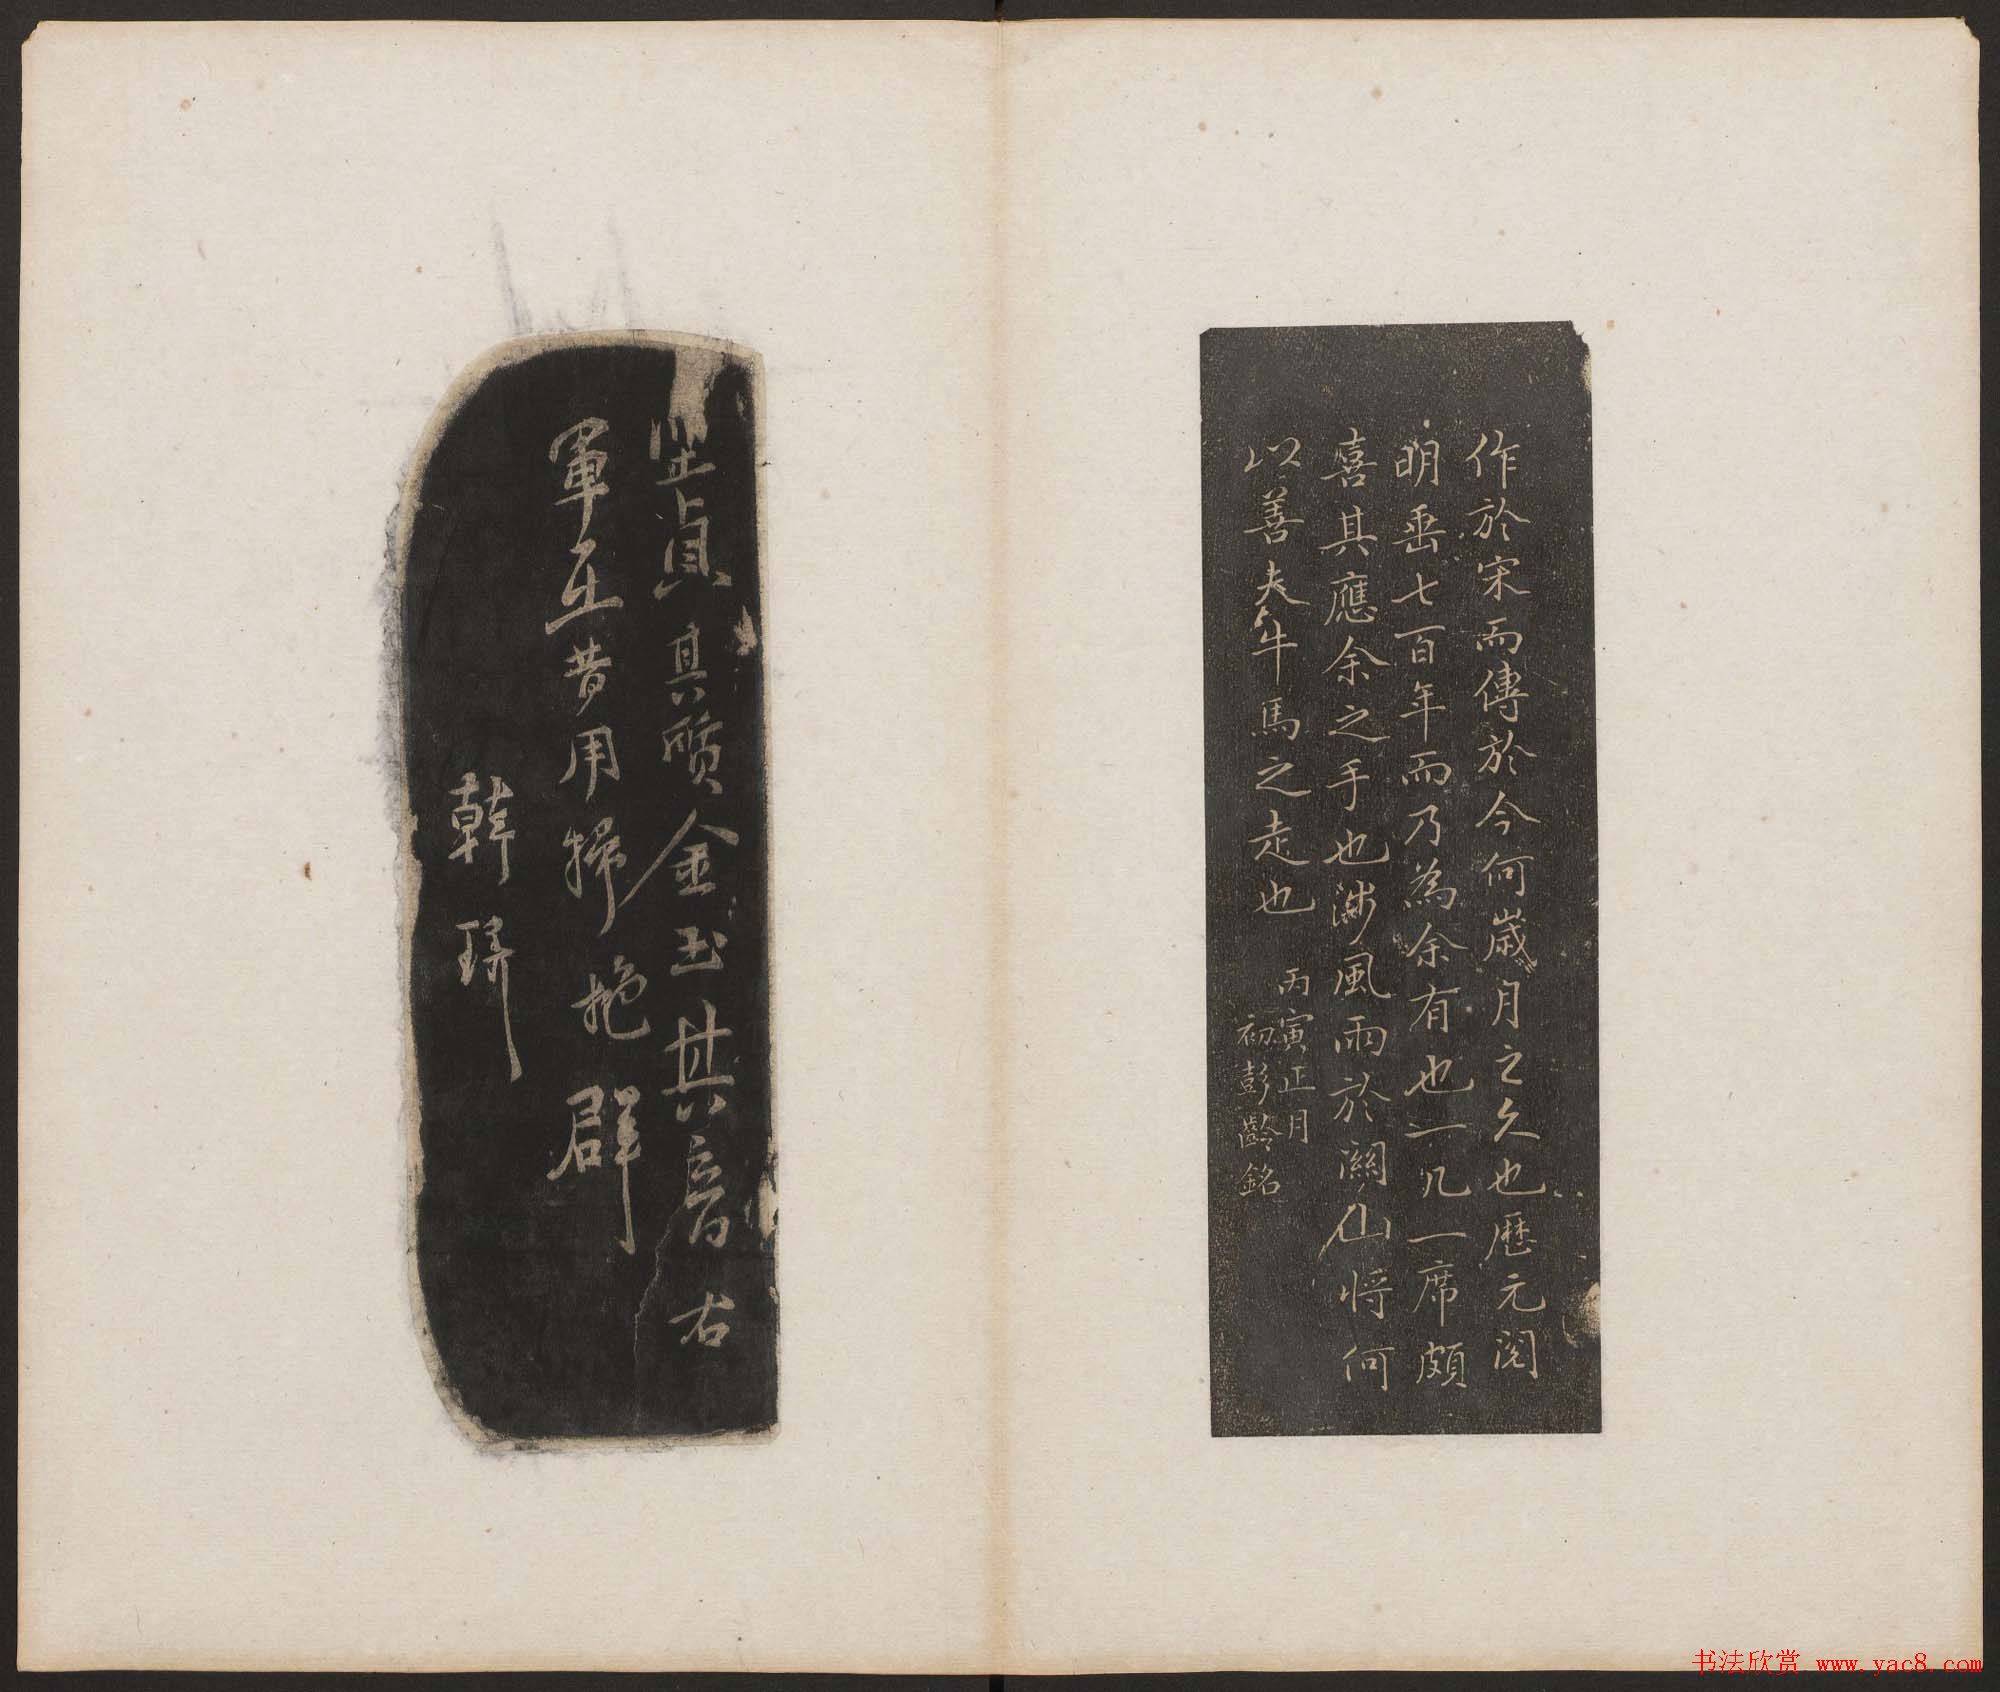 作於宋而傳於今何歲月之久也歷元閱
明垂七百年而乃為余有也一几一席頗
喜其應余之手也涉風雨於關山將何
以善夫牛馬之走也
丙寅正月
初彭齡銘
堅貞其質金玉其音右
軍在昔用掃絶群
韓琦
书法欣赏 www.yac8.com